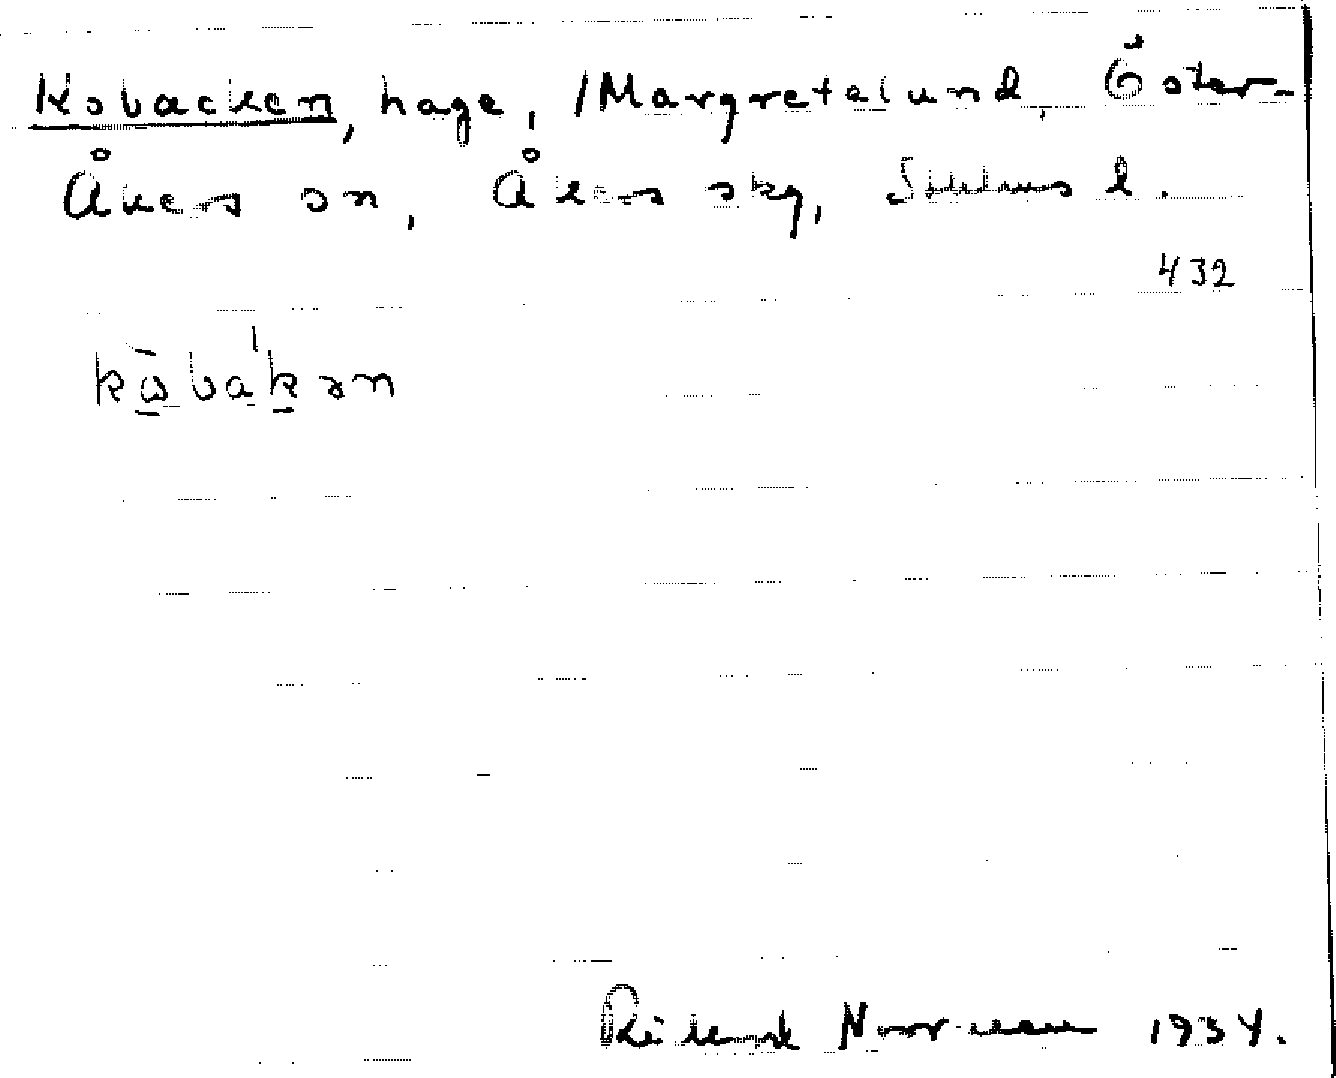 Kobacken, hage, /Margretelund, Öster-
Åkers sn, Åkers skg, Sthlms l.
432
kὼbákən
Rikard Norrman 1934.